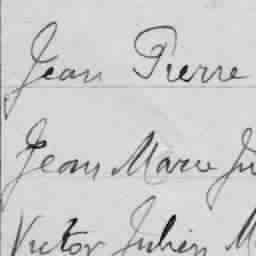 Jean Pierre
Jean Marie Ju
Victor Julien M